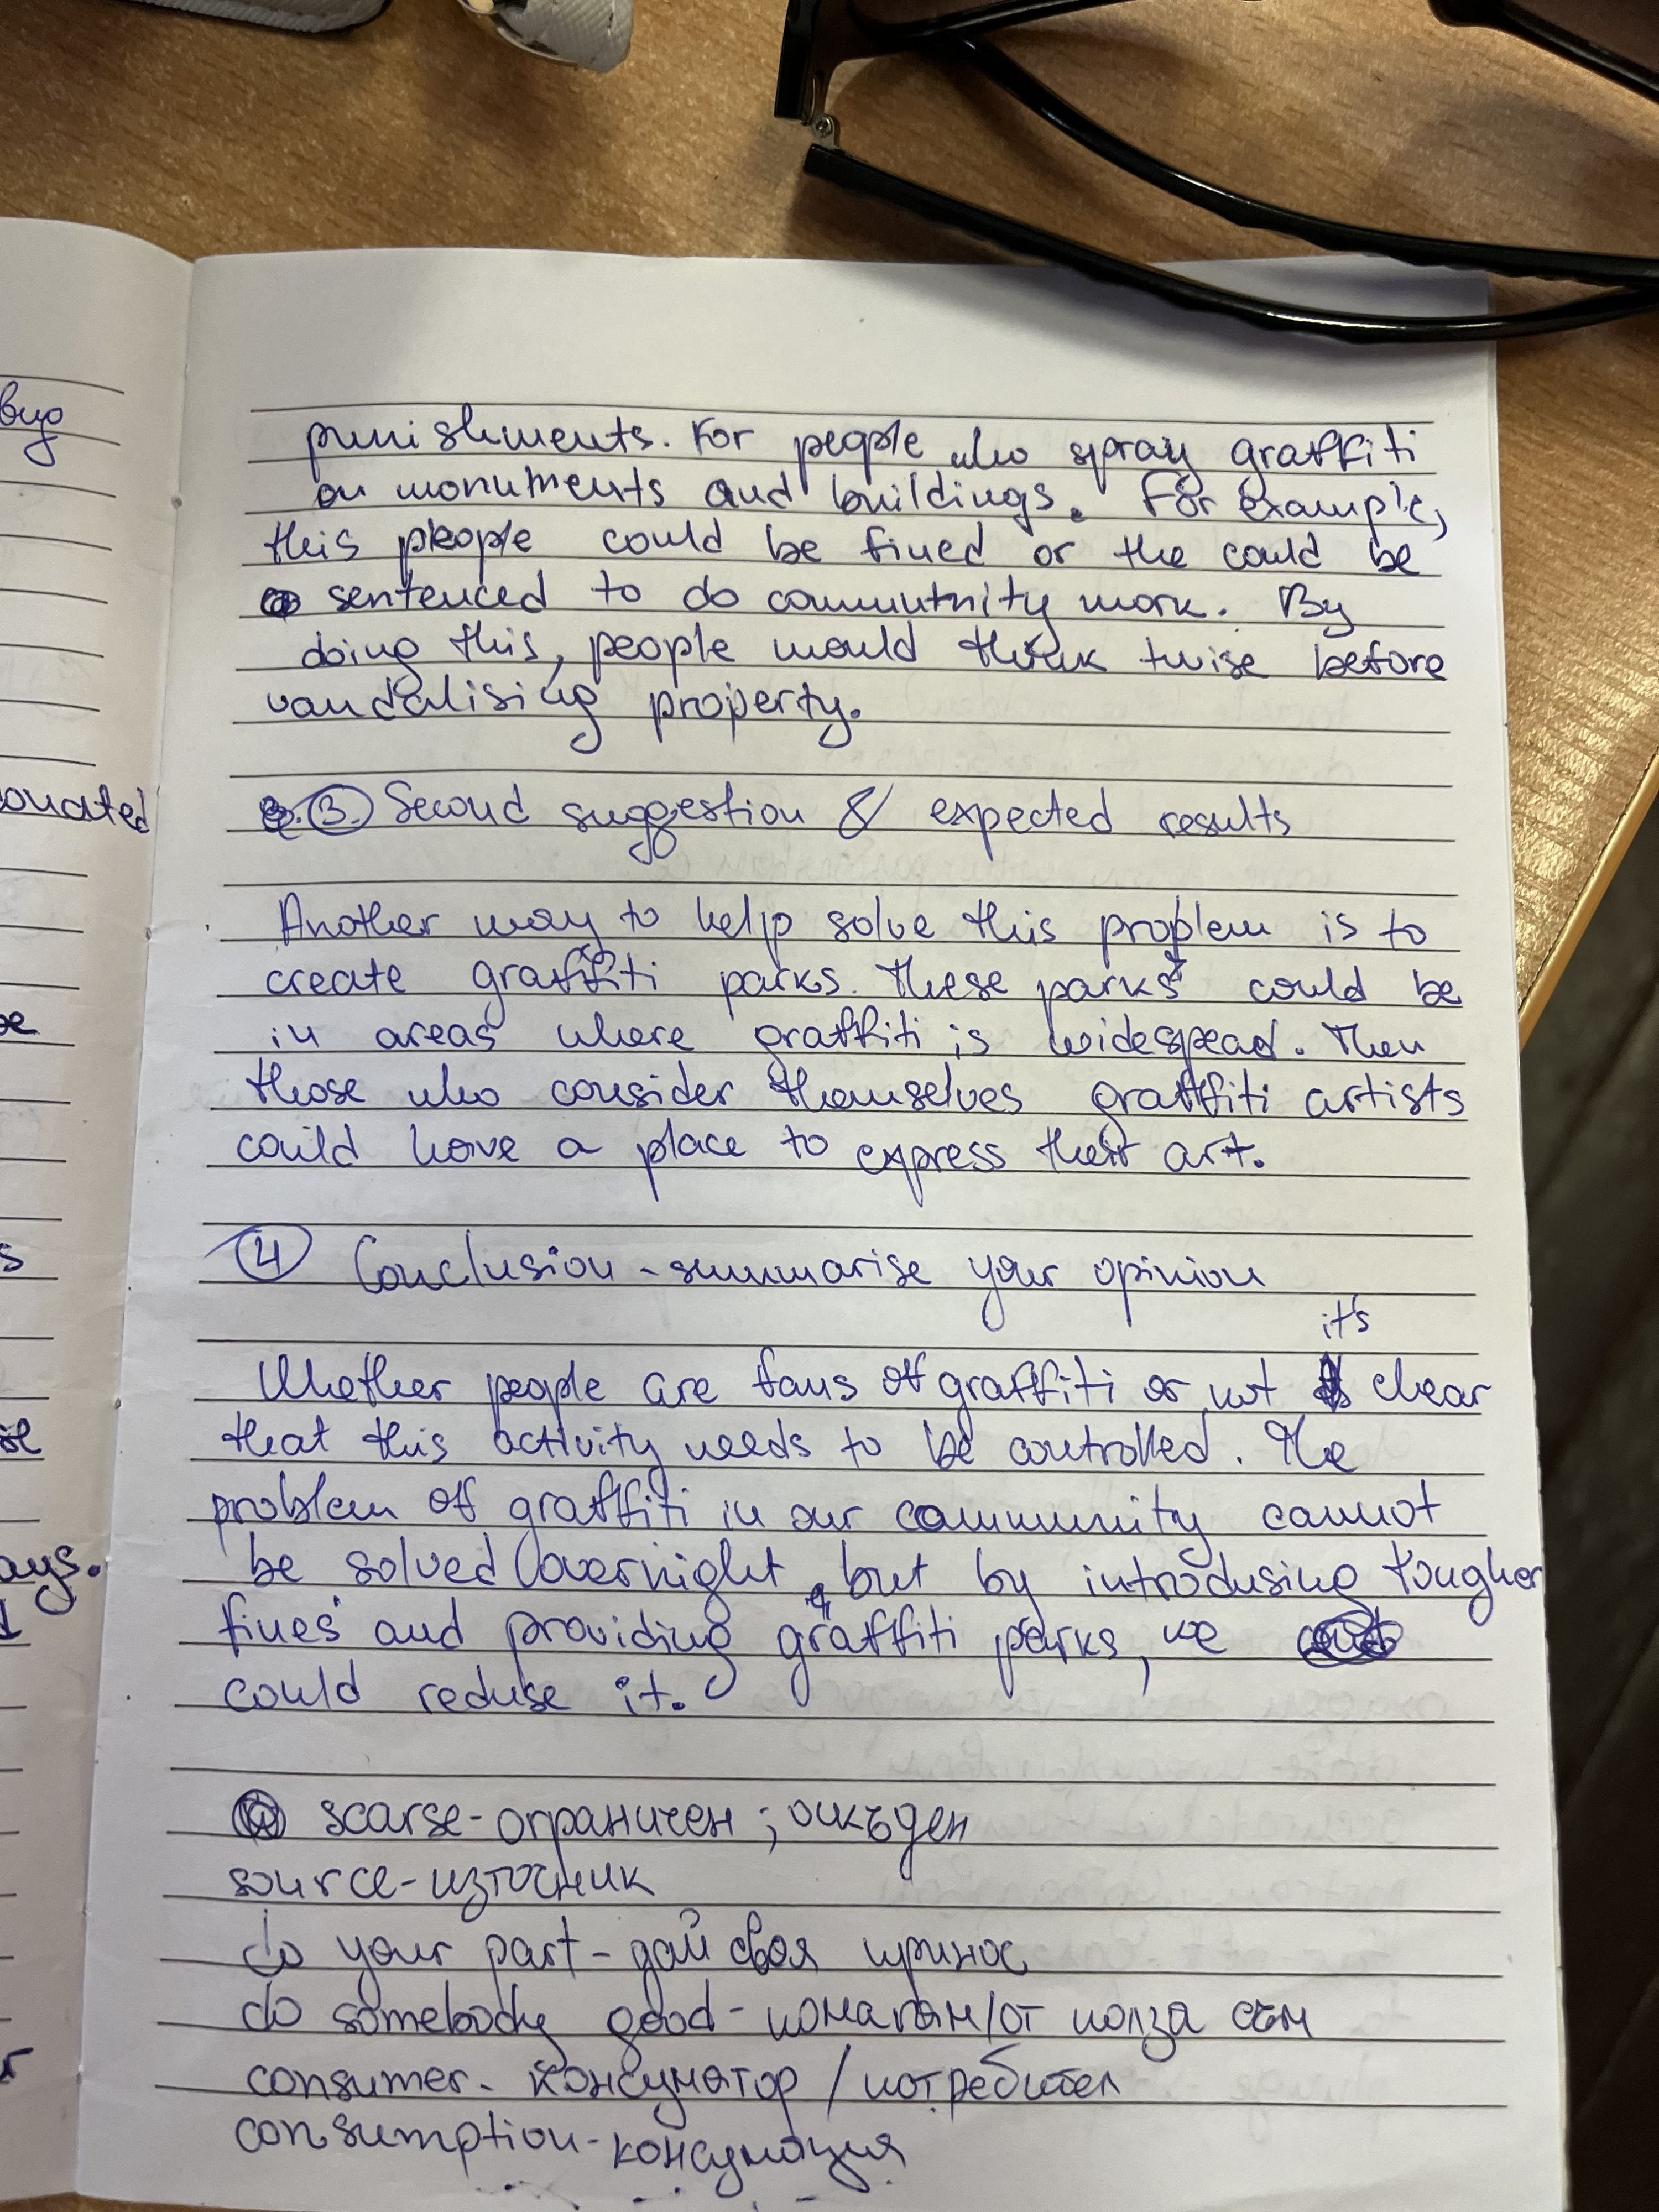 punishments. For people who spray graffiti
on monuments and buildings. For example,
this people could be fined or the could be
sentenced to do commutnity work. By
doing this, people would think twise before
vandalising property.
3. Second suggestion & expected results
Another way to help solve this problem is to
create graffiti parks. These parks could be
in areas where graffiti is widespead. Then
those who consider themselves graffiti artists
could have a place to express their art.
4 Conclusion - summarise your opinion
it's
Whether people are fans of graffiti or not clear
that this activity needs to be controlled. The
problem of graffiti in our community cannot
be solved overnight, but by introdusing tougher
fines and providing graffiti parks, we
could reduse it.
scarse - ограничен; оскъден
source - източник
do your part - дай своя принос
do somebody good - помагам/от полза съм
consumer - консуматор / потребител
consumption - консумация
onated
ays.